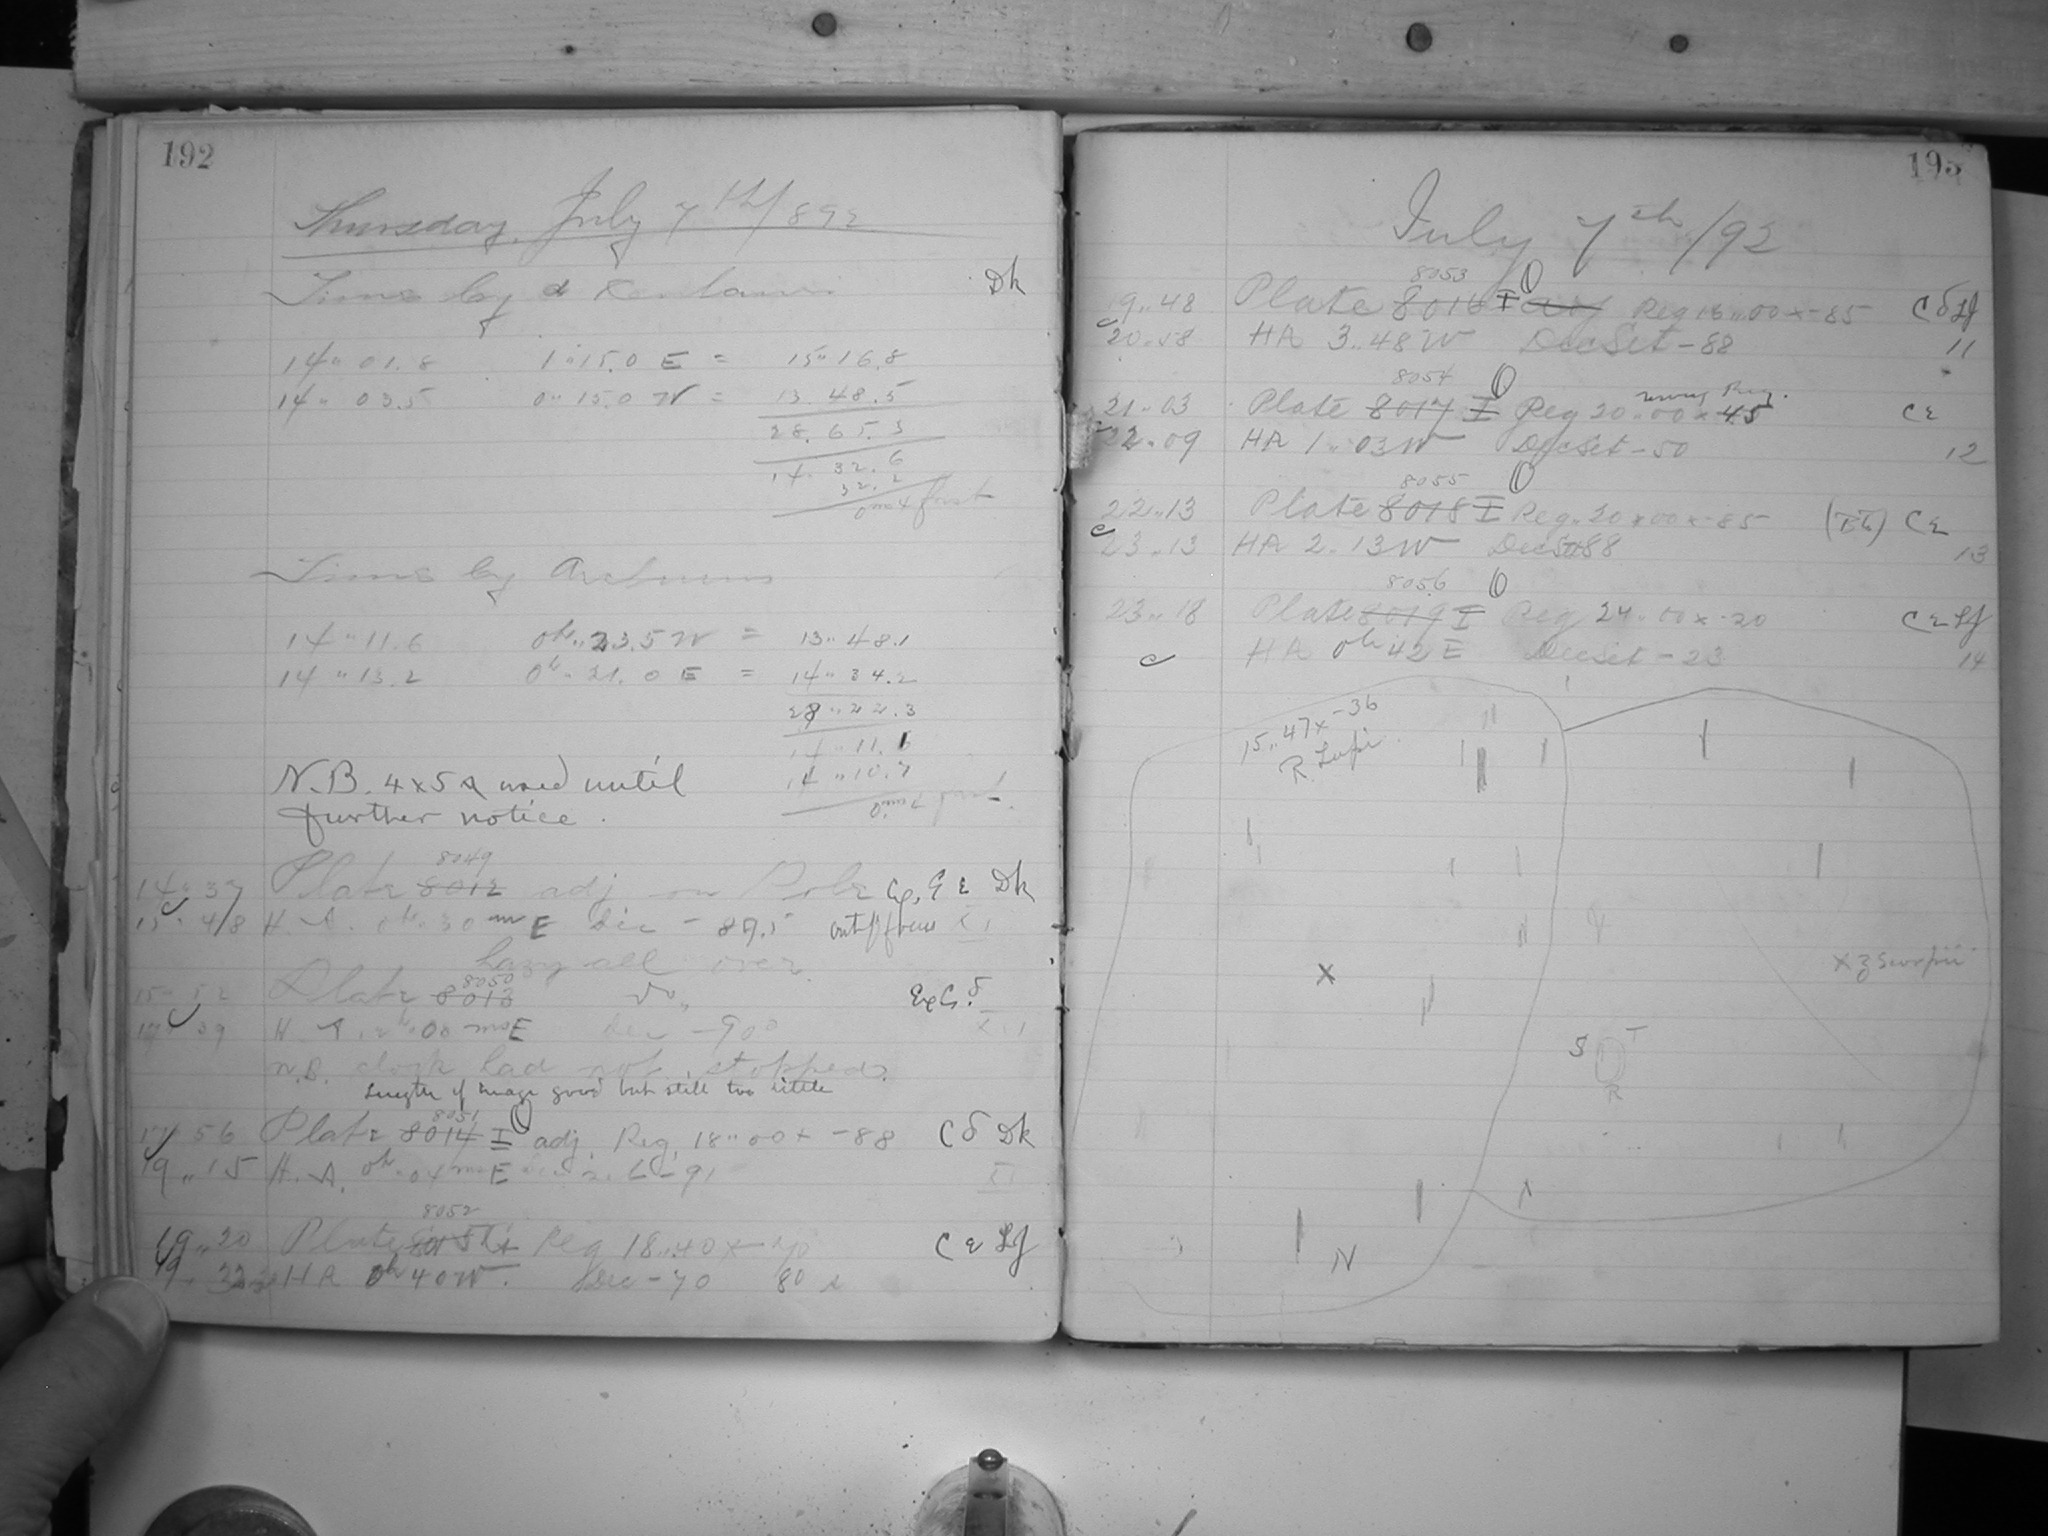 192
Thursday, July 7th 1892
Time by α Centauri Dk
14" 01.8 1"15.0 E = 15" 16.8
14" 03.5 0" 15.0 W = 13. 48.5
28. 65.3
14. 32.6
32.2
0m4 fast
Time by Arcturus
14" 11.6 0h" 23.5 W = 13" 48.1
14" 13.2 0h" 21.0 E = 14" 34.2
28" 22.3
14" 11.1
14" 10.7
N.B. 4x5s used until
further notice.
8049
14" 37 Plate 8012 adj on Pole Dk
15" 48 H.A. 0h" 30m E dec - 89.5 out of focus
hazy all over
8050
15" 52 Plate 8013 do"
17" 39 H.A. 00m E dec -90°
N.B. clock had not stopped.
Length of image good but still too little
8051
17" 56 Plate 8014 I adj. Reg. 18"00 x -88 C δ Dk
19" 15 H.A. 0h" 04m E -91
8052
19" 20 Plate Reg 18"40 x C ε Lf
19" HA 0h 40 W. Dec -70 80
193
July 7th/92
8053
19"48 Plate 8016 I adj Reg 18"00 x -85 C δ Lf
20"58 HA 3"48 W Dec Set -88 11
8054
21"03 Plate 8017 I Reg 20"00 x 45 wrong Reg. C ε
22"09 HA 1"03 W Dec Set -50 12
8055
22"13 Plate 8018 I Reg. 20 x 00 x -85 C ε
23"13 HA 2"13 W Dec Set 88 13
8056
23"18 Plate 8019 I Reg 24"00 x -20 C ε Lf
HA 0h 42 E Dec Set -23 14
15"47 x -36
R. Lupi
X
X Z Scorpii
S T
R
N